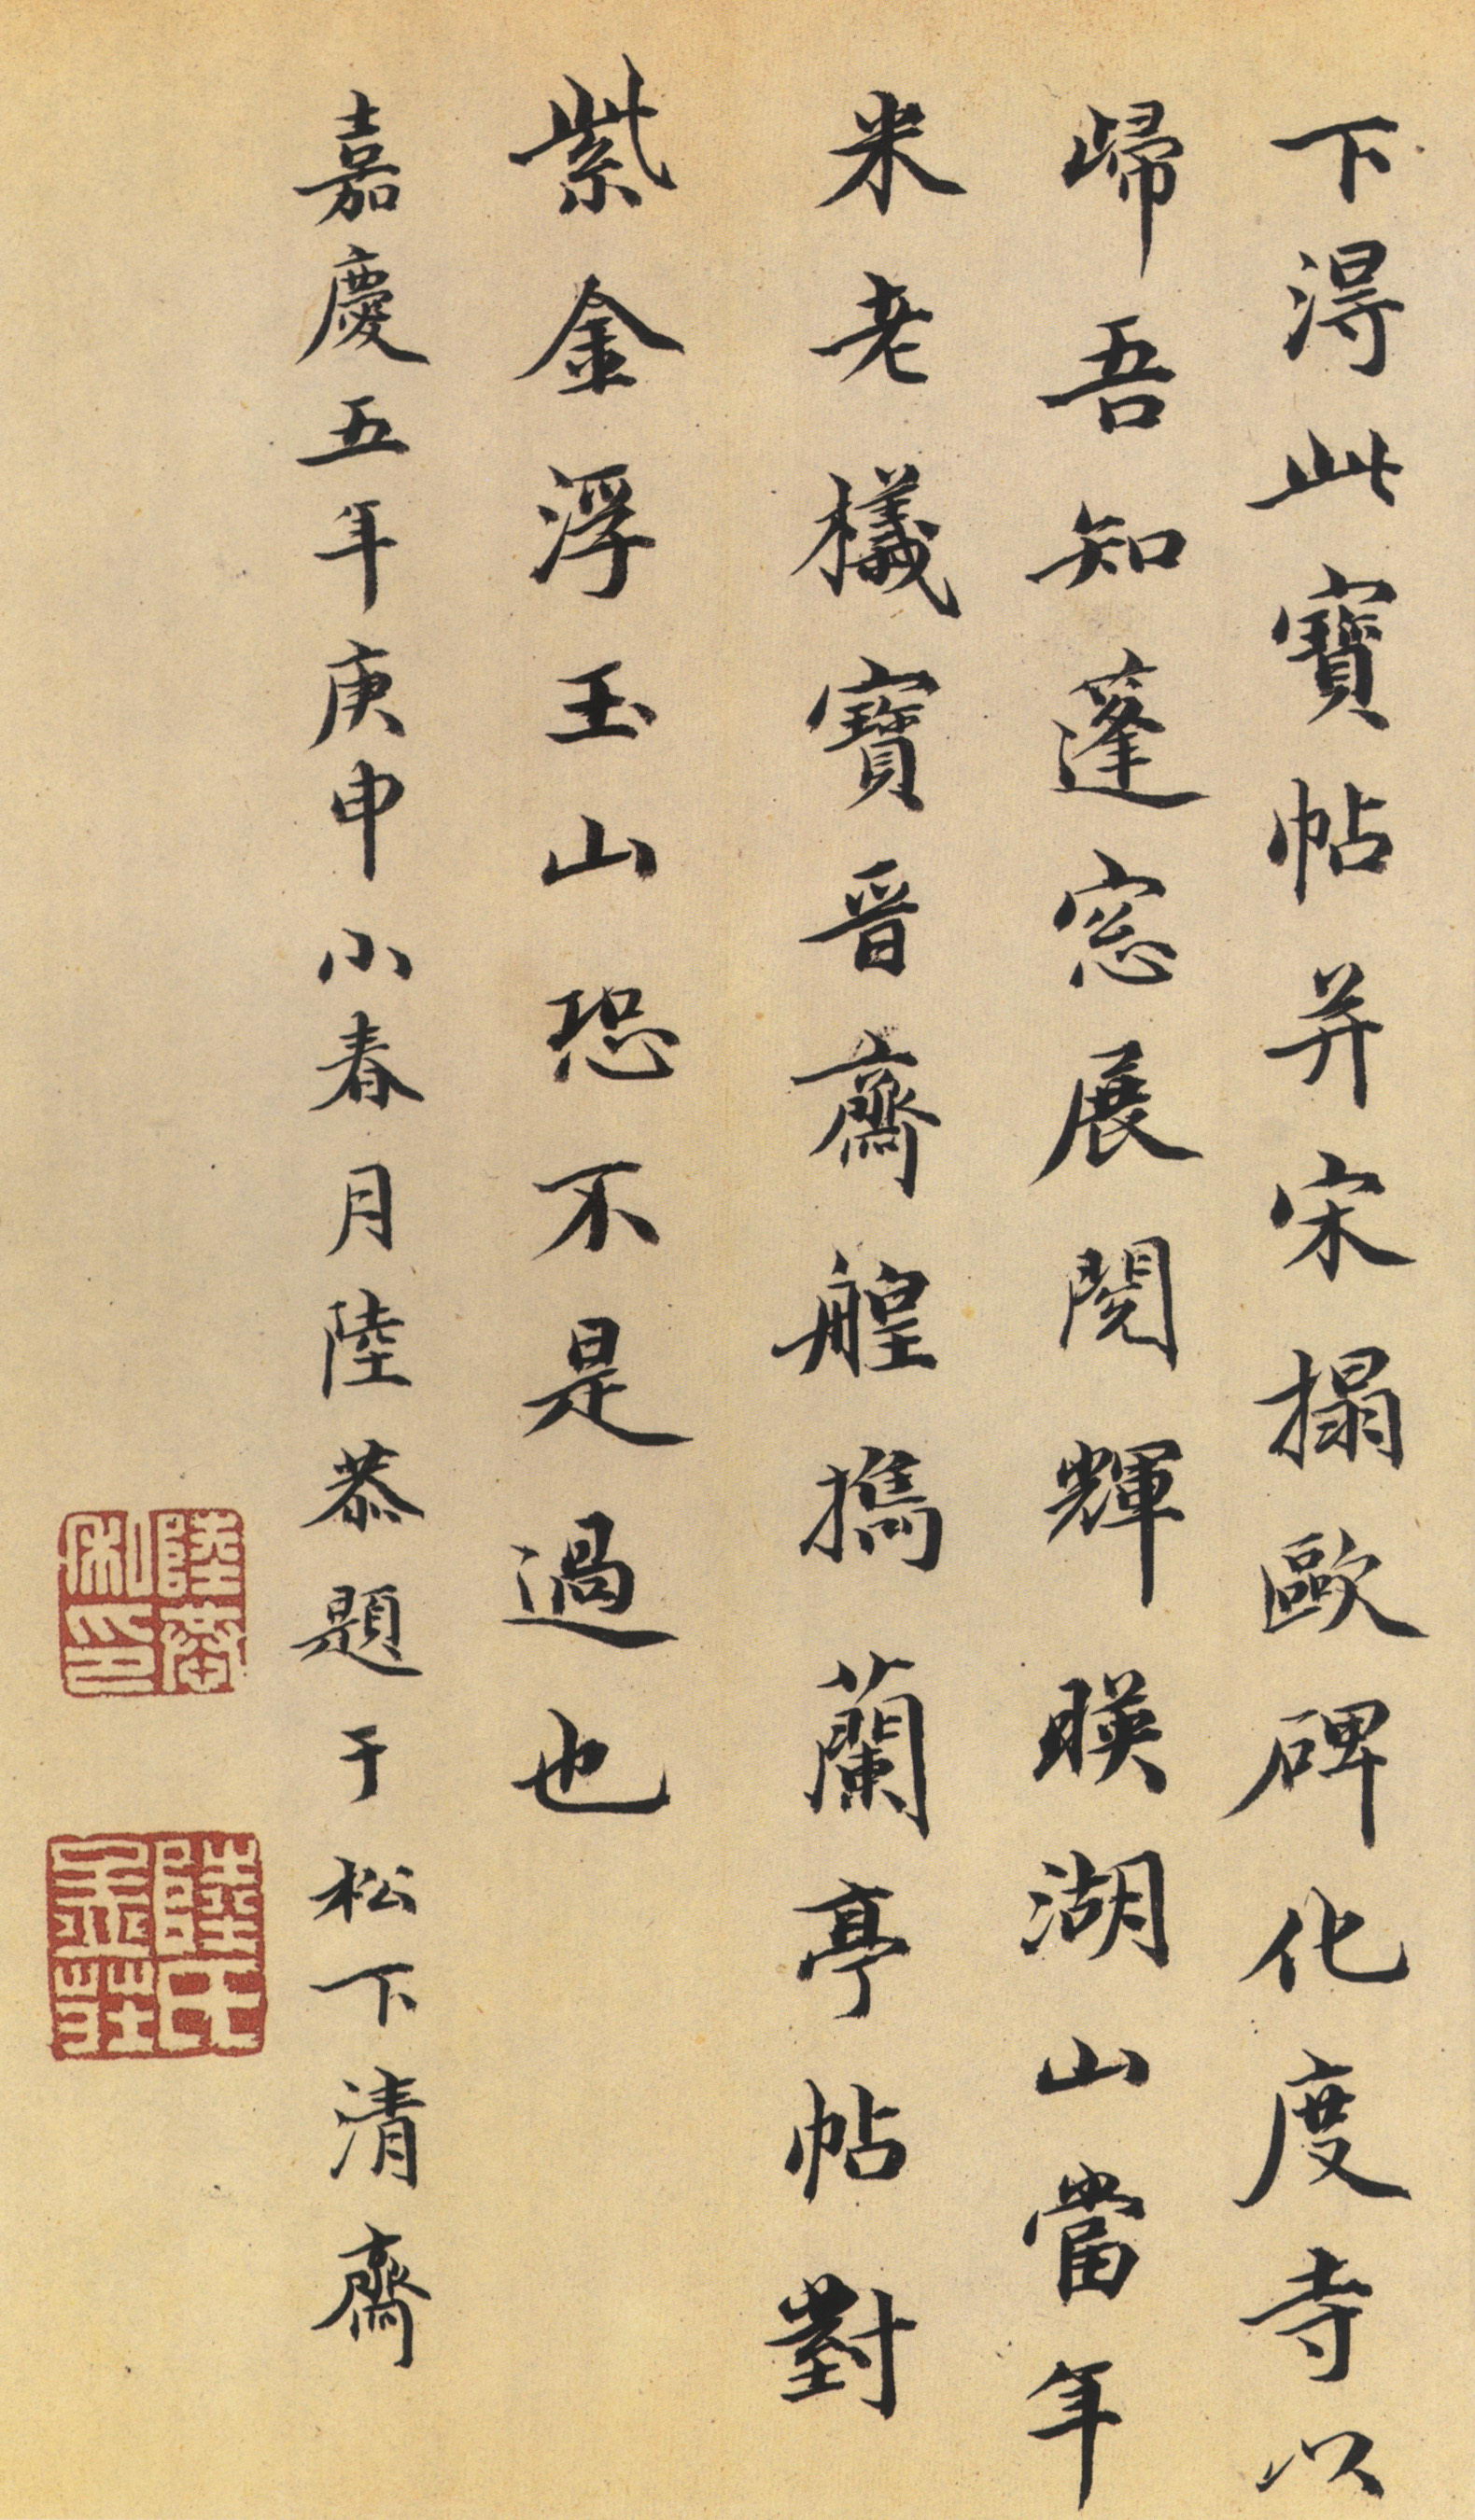 下得此寶帖并宋搨歐碑化度寺以
歸吾知蓬窓展閱輝暎湖山當年
米老檥寶晉齋艎擕蘭亭帖對
紫金浮玉山恐不是過也
嘉慶五年庚申小春月陸恭題于松下清齋
陸恭私印
陸氏